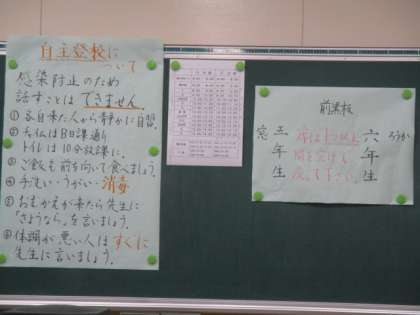 自主登校に
ついて
感染防止のため
話すことはできません。
①各自来た人から静かに自習。
②チャイムは日課通り
トイレは10分放課に。
③ご飯も前を向いて食べましょう。
④手洗い・うがい・消毒
⑤おむかえが来たら先生に
「さようなら」を言いましょう。
⑥体調が悪い人はすぐに
先生に言いましょう。
前黒板
ろうか
六年生
席は1つ以上
間を空けて
座って下さい。
五年生
窓